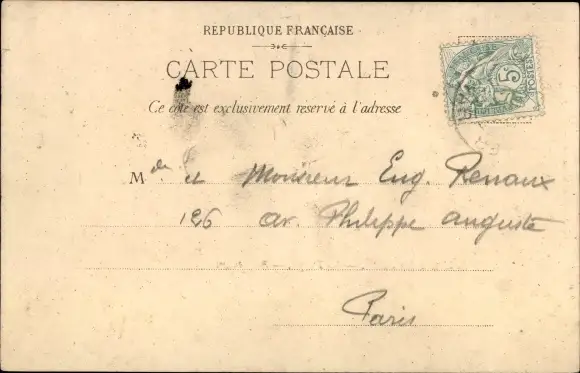 RÉPUBLIQUE FRANÇAISE
CARTE POSTALE
Ce côté est exclusivement réservé à l'adresse
5
POSTES
Mde et Monsieur Eug. Renaux
126 av. Philippe auguste
Paris